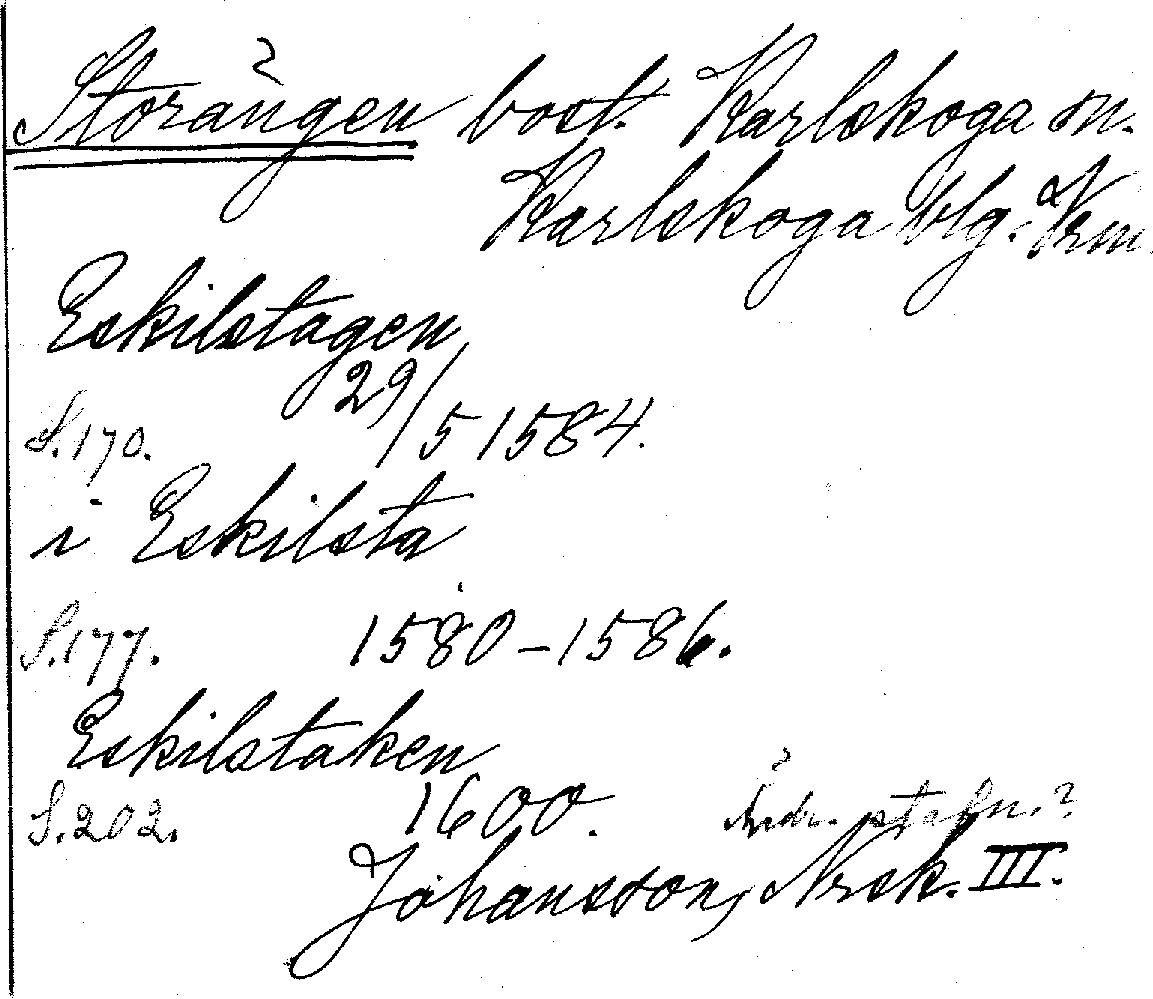 ?
Storängen bost. Karlskoga sn.
Karlskoga blg. Vrm.
Eskilstagen
S.170. 29/5 1584.
i Eskilsta
S.177. 1580-1586.
Eskilstaken
S.202. 1600. Ändr. stafn.?
Johansson, Nrsk. III.